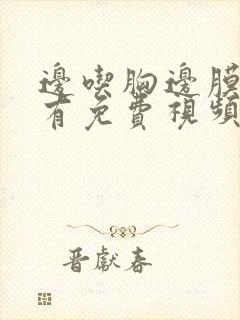 邊喫胸邊膜
有免費視頻
晋獻春